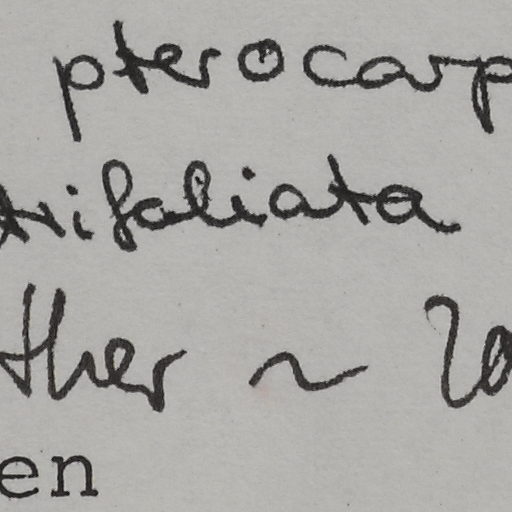 pterocarp
trifoliata
ther ~
en